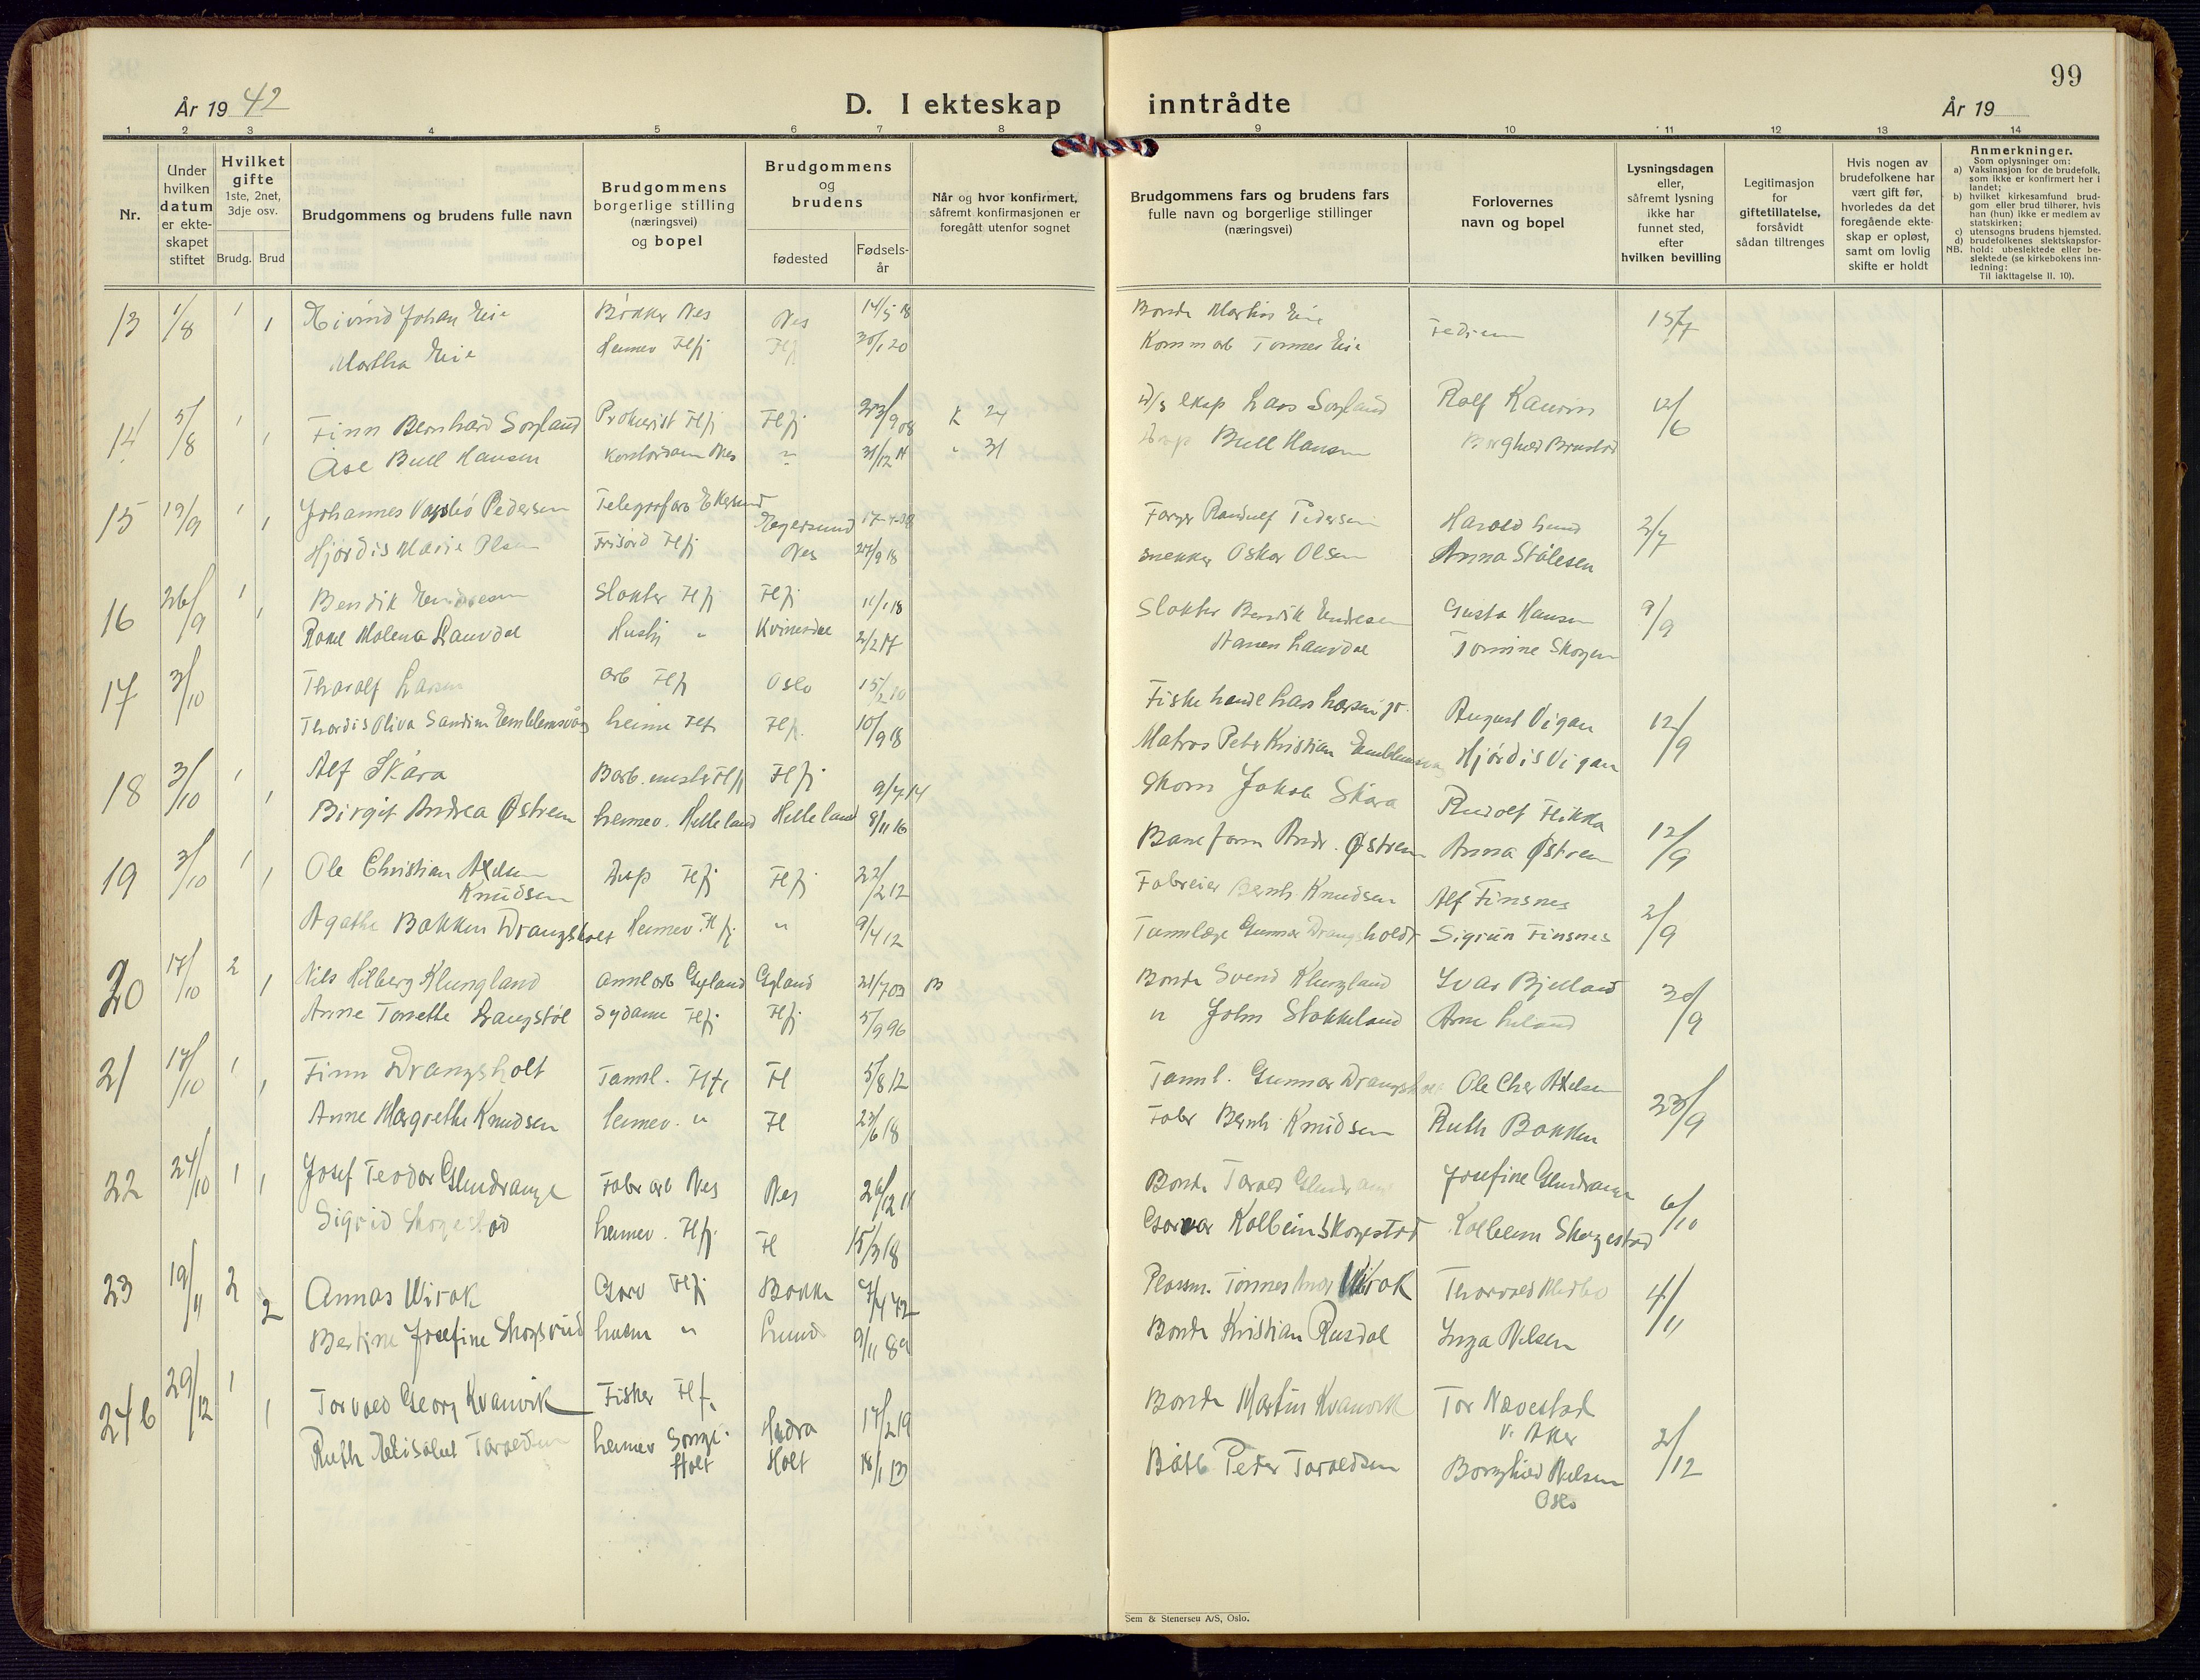 99
År 19 42
D. I ekteskap inntrådte
År 19
1 2 3 4 5 6 7 8 9 10 11 12 13 14
Nr.
Under hvilken datum er ekte-skapet stiftet
Hvilket gifte
1ste, 2net, 3dje osv.
Brudg. Brud
Brudgommens og brudens fulle navn
Brudgommens borgerlige stilling (næringsvei) og bopel
Brudgommens og brudens
fødested
Fødsels-år
Når og hvor konfirmert, såfremt konfirmasjonen er foregått utenfor sognet
Brudgommens fars og brudens fars fulle navn og borgerlige stillinger (næringsvei)
Forlovernes navn og bopel
Lysningsdagen eller, såfremt lysning ikke har funnet sted, efter hvilken bevilling
Legitimasjon for giftetillatelse, forsåvidt sådan tiltrenges
Hvis nogen av brudefolkene har vært gift før, hvorledes da det foregående ekte-skap er opløst, samt om lovlig skifte er holdt
Anmerkninger.
Som oplysninger om:
a) Vaksinasjon for de brudefolk, som ikke er konfirmert her i landet;
b) hvilket kirkesamfund brud-gom eller brud tilhører, hvis han (hun) ikke er medlem av statskirken;
c) utensogns brudens hjemsted.
d) brudefolkenes slektskapsfor-hold: ubeslektede eller be-slektede (se kirkebokens inn-ledning:
NB. Til iakttagelse II. 10).
13 1/8 1 Eivind Johan Eie Bødker Nes Nes 14/5 18 Bonde Martin Eie 15/7
1 Martha Eie Heimev Flfj Flfj 30/1 20 Komm arb Tonnes Eie
14 5/8 1 Finn Bernhard Søyland Prokurist Flfj Flfj 23/9 08 K 24 Lars Søyland Rolf Kaurin 12/6
1 Åse Bull Hansen Kontordame Nes " 31/12 " 31 Bull Hansen Borghild Brustad
15 19/9 1 Johannes Pedersen Telegrafarb Ekersund Egersund Randulf Pedersen Harald Lund 2/7
1 Hjørdis Marie Olsen Frisørd Flfj Nes 27/9 18 snekker Oskar Olsen Anna Stålesen
16 26/9 1 Bendik Endresen Slakter Flfj Flfj 11/1 18 Slakter Bendik Endresen Gusta Hansen 9/9
1 Malena Laurdal Hushj " Kvinesdal 2/2 17 Aanen Laurdal Tomine Skogen
17 3/10 Thoralf Larsen arb Flfj Oslo 15/2 10 Fiske handl Lars Larsen jr. August Vigan 12/9
Thordis Oliva Sandine Emblemsvåg heime Flfj Flfj. 10/9 18 Matros Peter Kristian Emblemsvåg Hjørdis Vigan
18 3/10 1 Alf Skåra Barb. mester Flfj Flfj 9/7 14 Skom Jakob Skåra Rudolf Flikka 12/9
1 Birgit Andrea Østrem heimev. Helleland Helleland 8/11 16 Baneform Andr. Østrem Anna Østrem
19 3/10 1 Ole Christian Axelsen Knudsen Disp Flfj Flfj 22/2 12 Fabreier Bernh. Knudsen Alf Finsnes 2/9
1 Agathe Bakken Drangsholt Heimev. Flfj " 9/4 12 Tannlæge Gunnar Drangsholdt Sigrun Finsnes
20 17/10 2 Nils Hilberg Klungland annlarb Gyland Gyland 21/7 03 B Bonde Svend Klungland Ivar Bjelland 30/9
1 Anne Tonette Langstøl Sydame Flfj Flfj 5/9 96 " John Stakkeland Arne
21 17/10 1 Finn Drangsholt Tannl. Flfj Fl 5/8 12 Tannl. Gunnar Drangsholt Ole Chr Axelsen 23/9
1 Anne Margrethe Knudsen heimev. " Fl 23/6 18 Fabr Bernh Knudsen Ruth Bakken
22 24/10 1 Josef Teodor Glendrange Fabr arb Nes Nes 26/12 11 Bonde Tarald Glendrange Josefine Glendrange 6/10
1 Sigrid Skogestad heimev. Flfj Fl 15/3 18 Garver Kolbein Skogestad Kolbein Skogestad
23 19/11 2 Annas Wirak Garv Flfj Bakke Plassm. Tønnes Wirak Thorvald 4/11
2 Bertine Josefine Skogsrud husm " Lund 9/11 89 Bonde Kristian Rusdal Inga Nilsen
24 b 29/12 1 Torvald Georg Kvanvik Fisker Flfj Hidra 17/2 19 Bonde Martin Kvanvik Tor Nævestad V. Aker 2/12
1 Ruth Elisabet Taraldsen heimev Songe Holt Holt 18/1 13 Båtb. Peder Taraldsen Borghild Nilsen Oslo
Sem & Stenersen A/S, Oslo.